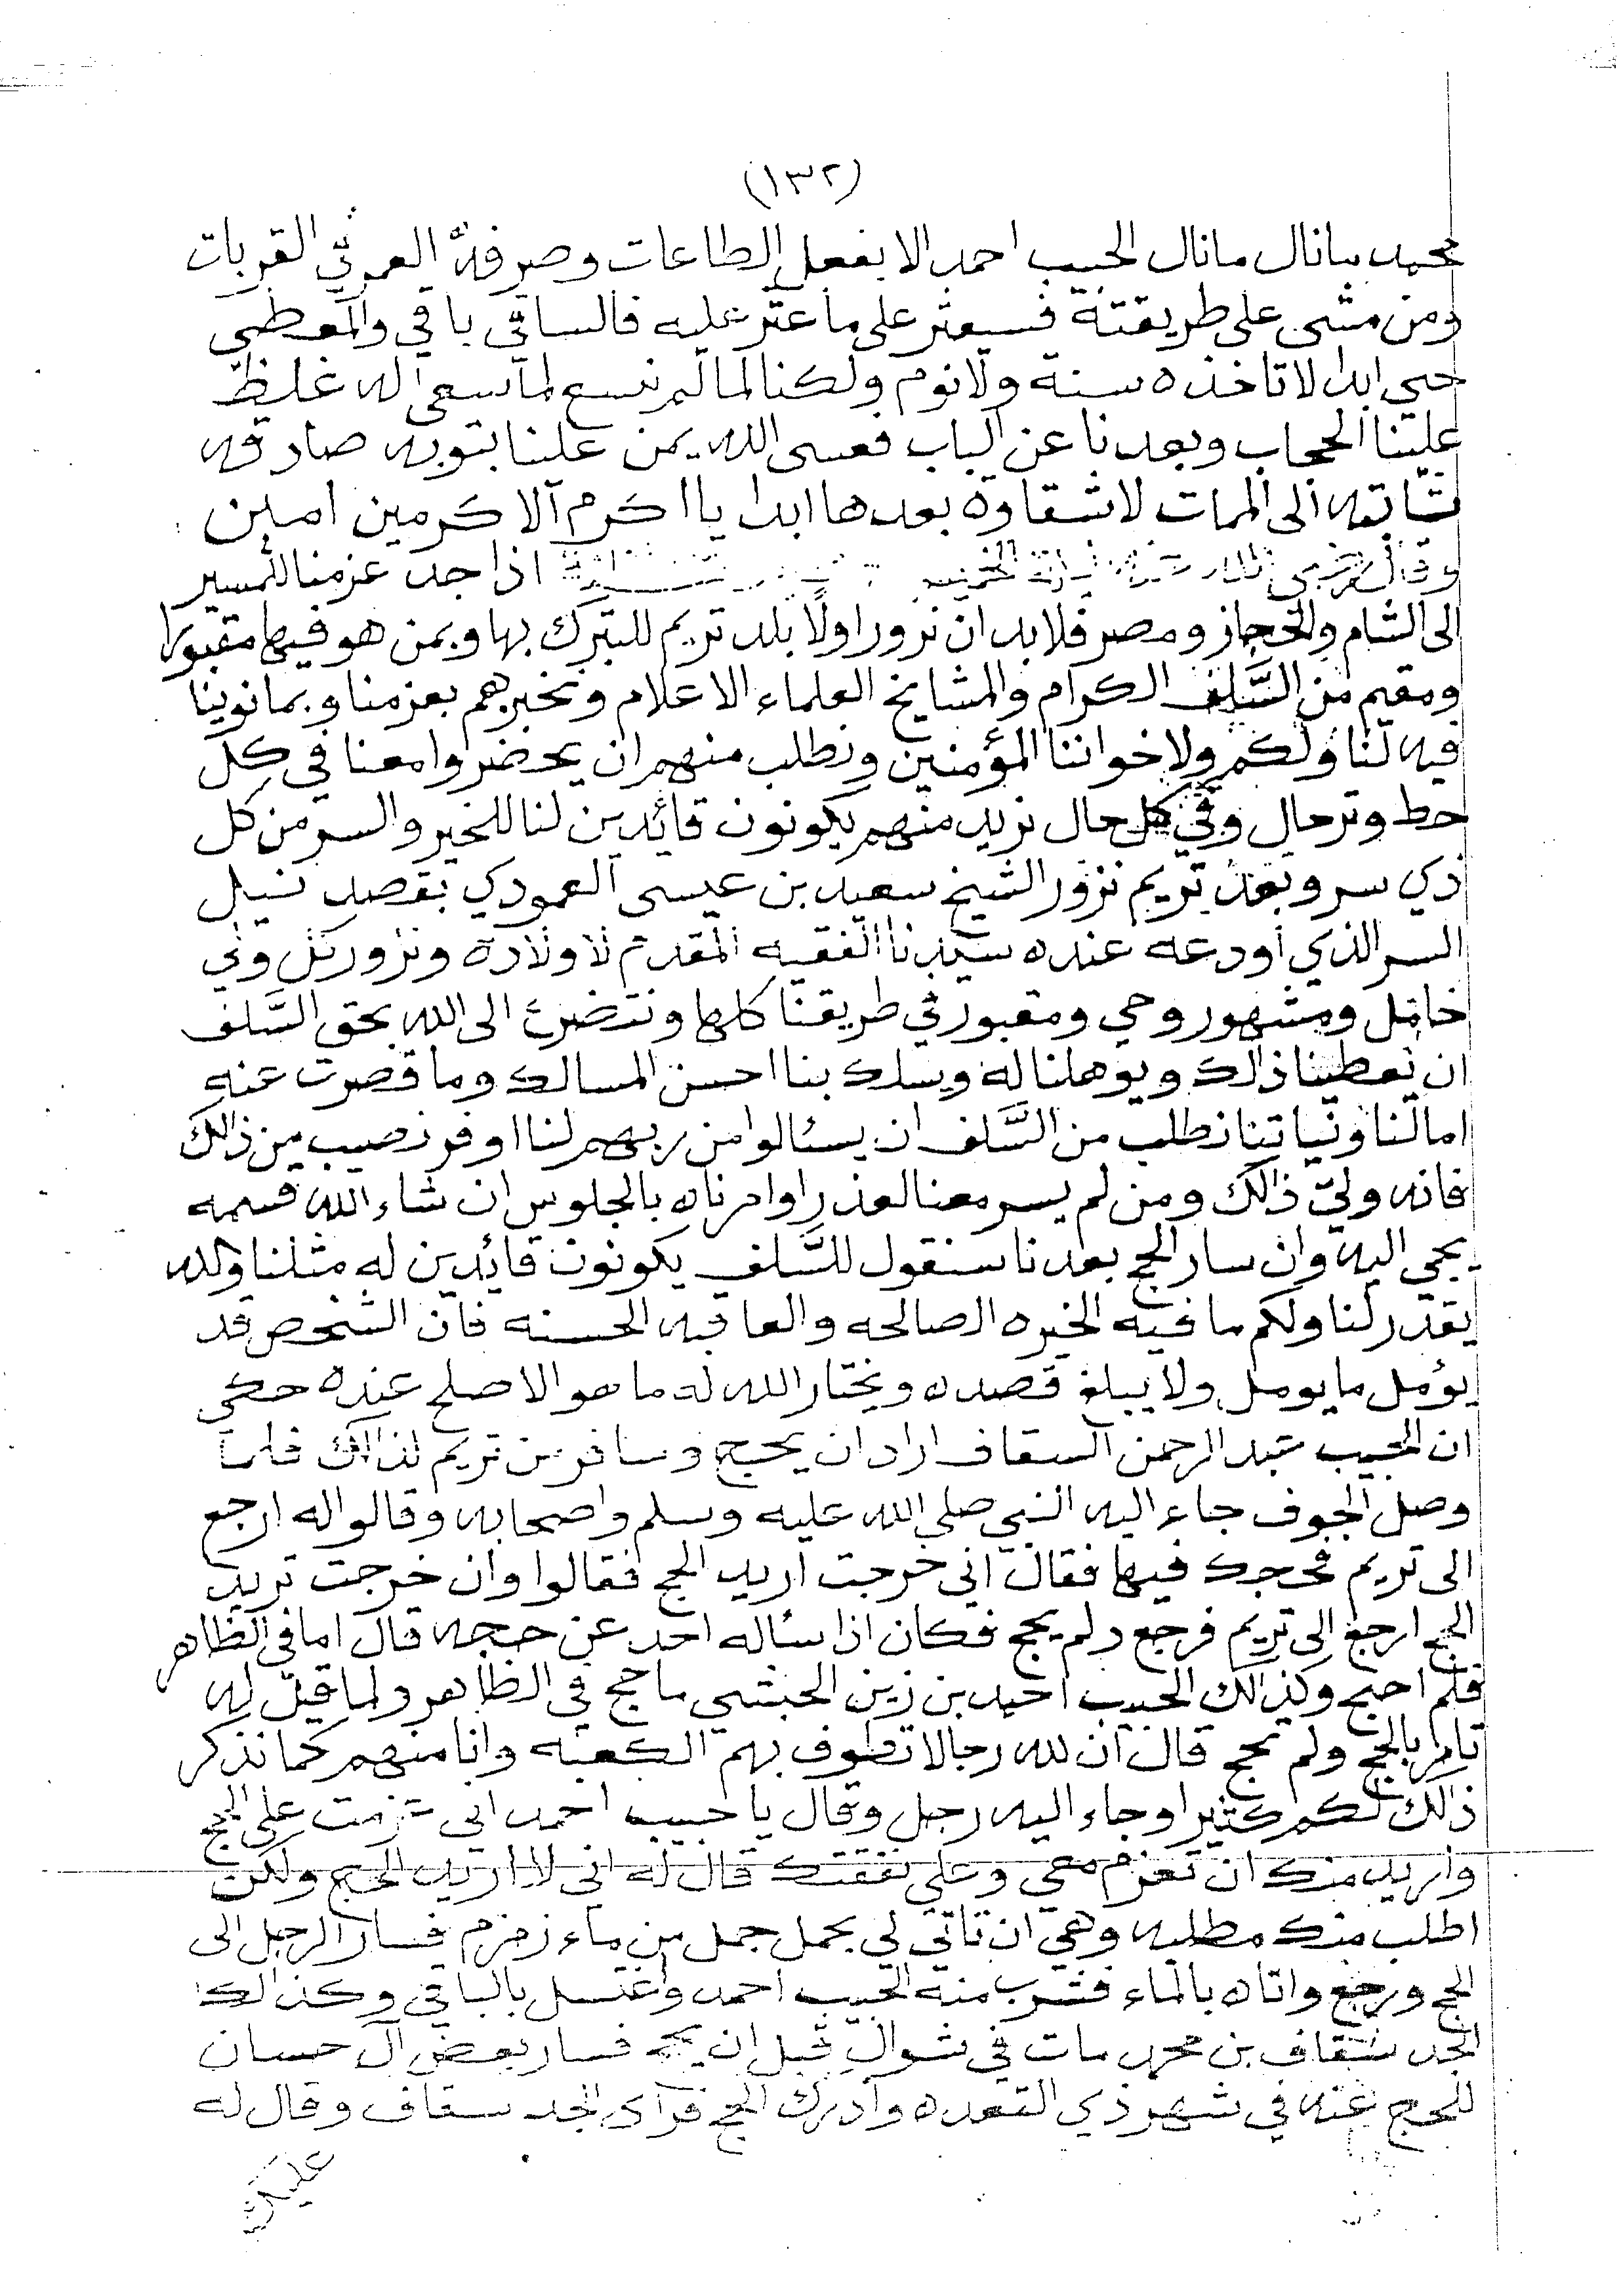 (١٣٢)
محمد مانال مانال الحبيب احمد الا بفعل الطاعات وصرفه العمر في القربات
ومن مشى على طريقته فسيعثر على ما عثر عليه فالساقي باقي والمعطي
حي ابدا لا تاخذه سنة ولا نوم ولكنا لما لم نسع لما سعى له غلظ
علينا الحجاب وبعدنا عن الباب فعسى الله يمن علينا بتوبه صادقه
ثابته الى الممات لا شقاوه بعدها ابدا يا اكرم الاكرمين امين
وقال رضي اذا جد عزمنا للمسير
الى الشام والحجاز ومصر فلا بد ان نزور اولا بلد تريم للتبرك بها وبمن هو فيها مقبورا
ومقيم من السَّلف الكرام والمشايخ العلماء الاعلام ونخبرهم بعزمنا وبما نوينا
فيه لنا ولكم ولاخواننا المؤمنين ونطلب منهم ان يحضروا معنا في كل
حط وترحال وفي كل حال نريد منهم يكونون قائدين لنا للخير والسر من كل
ذي سر وبعد تريم نزور الشيخ سعيد بن عيسى العمودي بقصد نيل
السر الذي اودعه عنده سيدنا الفقيه المقدم لاولاده ونزور كل ولي
خامل ومشهور وحي ومقبور في طريقنا كلها ونتضرع الى الله بحق السَّلف
ان يعطينا ذالك ويوهلنا له ويسلك بنا احسن المسالك وما قصرت عنه
امالنا ونياتنا نطلب من السَّلف ان يسئالوا من ربهم لنا اوفر نصيب من ذالك
فانه ولي ذالك ومن لم يسر معنا لعذر او امرناه بالجلوس ان شاء الله قسمه
يجي اليه وان سار الحج بعدنا سنقول للسَّلف يكونون قايدين له مثلنا والله
يقدر لنا ولكم ما فيه الخيره الصالحه والعاقبه الحسنه فان الشخص قد
يؤمل ما يومل ولا يبلغ قصده ويختار الله له ما هو الاصلح عنده حكي
ان الحبيب عبد الرحمن السقاف اراد ان يحج وسافر من تريم لذالك فلما
وصل الجوف جاء اليه النبي صلى الله عليه وسلم واصحابه وقالوا له ارجع
الى تريم فحجك فيها فقال اني خرجت اريد الحج فقالوا وان خرجت تريد
الحج ارجع الى تريم فرجع ولم يحج فكان اذا ساله احد عن حجه قال اما في الظاهر
فلم احج وكذالك الحبيب احمد بن زين الحبشي ما حج في الظاهر ولما قيل له
تامر بالحج ولم تحج قال ان لله رجالا تطوف بهم الكعبه وانا منهم كما نذكر
ذالك لكم كثيرا وجاء اليه رجل وقال يا حبيب احمد اني عزمت على الحج
واريد منك ان تعزم معي وعلي نفقتك قال له اني لا اريد الحج ولكن
اطلب منك مطلبه وهي ان تاتي لي بحمل جمل من ماء زمزم فسار الرجل الى
الحج ورجع واتاه بالماء فشرب منه الحبيب احمد واغتسل بالباقي وكذالك
الجد سقاف بن محمد مات في شوال قبل ان يحج فسار بعض ال حسان
للحج عنه في شهر ذي القعده وادرك الحج فراى الجد سقاف وقال له
عليك